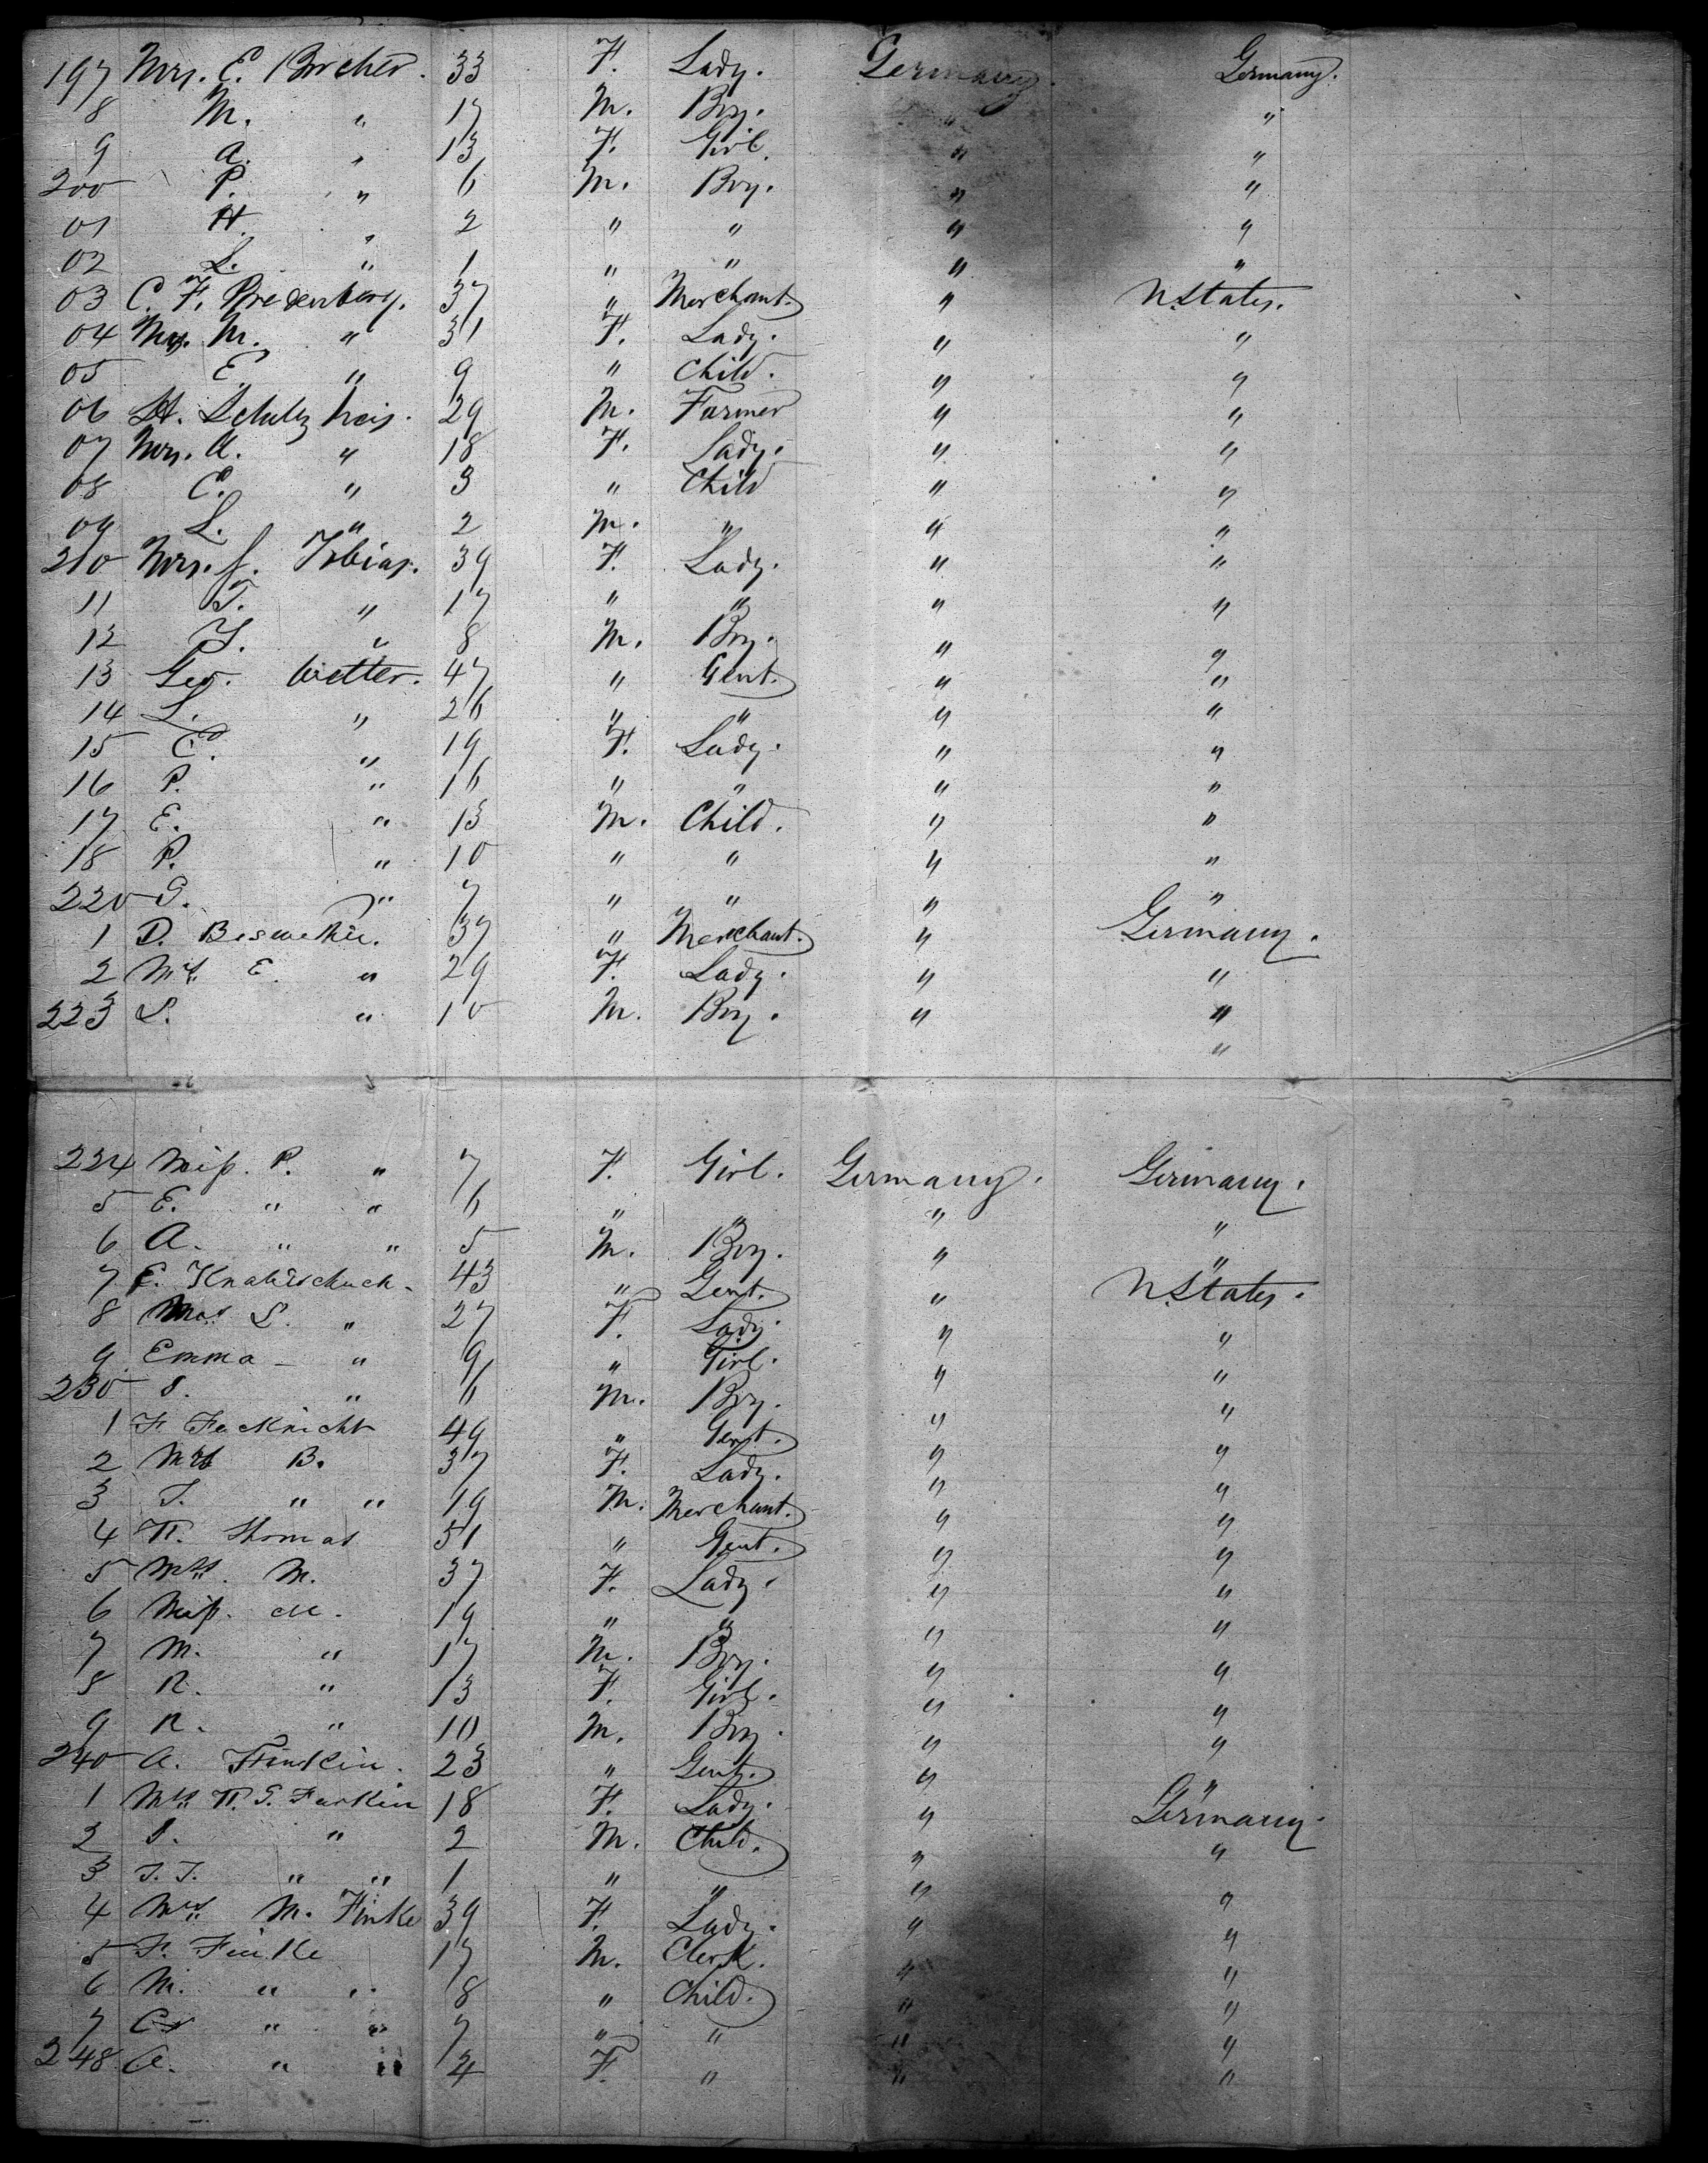 197 Mrs. E. Borcher. 33 F. Lady. Germany. Germany.
8 M. " 17 M. Boy. " "
9 A. " 13 F. Girl. " "
200 P. " 6 M. Boy. " "
01 H. " 2 " " " "
02 L. " 1 " " " "
03 C. F. Bredenburg. 37 " Merchant. " U. States.
04 Mrs. M. " 31 F. Lady. " "
05 E " 9 " Child. " "
06 H. Schultz heis. 29 M. Farmer " "
07 Mrs. A. " 18 F. Lady. " "
08 C. " 3 " Child " "
09 L. " 2 M. " " "
210 Mrs. J. Tobias. 39 F. Lady. " "
11 T. " 17 " " " "
12 J. " 8 M. Boy. " "
13 Geo. Wetter. 47 " Gent. " "
14 L. " 26 " " " "
15 C. " 19 F. Lady. " "
16 P. " 16 " " " "
17 E. " 13 M. Child. " "
18 P. " 10 " " " "
220 G. " 7 " " " "
1 D. 37 " Merchant. " Germany.
2 Mrs E. " 29 F. Lady. " "
223 S. " 10 M. Boy. " "
"
224 Miss. P. " 7 F. Girl. Germany. Germany.
5 E. " " 6 " " " "
6 A. " " 5 M. Boy. " "
7 E. 43 " Gent. " U. States.
8 Mrs S. " 27 F. Lady. " "
9 Emma - " 9 " Girl. " "
230 S. " 6 M. Boy. " "
1 F Fecknicht 49 " Gent. " "
2 Mrs B. 37 F. Lady. " "
3 T. " " 19 M. Merchant. " "
4 H. Thomas 51 " Gent. " "
5 Mrs. M. 37 F. Lady. " "
6 Miss. M. 19 " " " "
7 M. " 17 M. Boy. " "
8 R. " 13 F. Girl. " "
9 R. " 10 M. Boy " "
240 A. 23 " Gent. " "
1 Mrs H. G. Farkin 18 F. Lady. " Germany.
2 S. " 2 M. Child. " "
3 T. T. " " 1 " " " "
4 Mrs M. Finke 39 F. Lady. " "
5 F. Finke 17 M. Clerk. " "
6 M. " " 8 " Child. " "
7 C " " 7 " " " "
248 A. " " 4 F. " " "